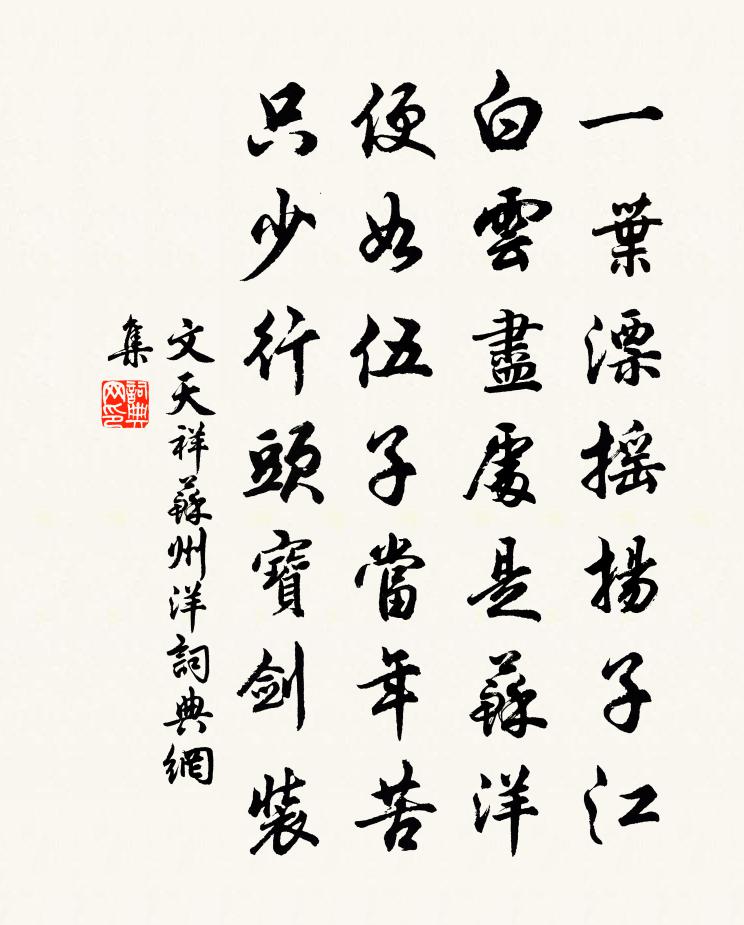 一葉漂摇揚子江
白雲盡處是蘇洋
便如伍子當年苦
只少行頭寶劍裝
文天祥蘇州洋詞典網
集
詞典网印